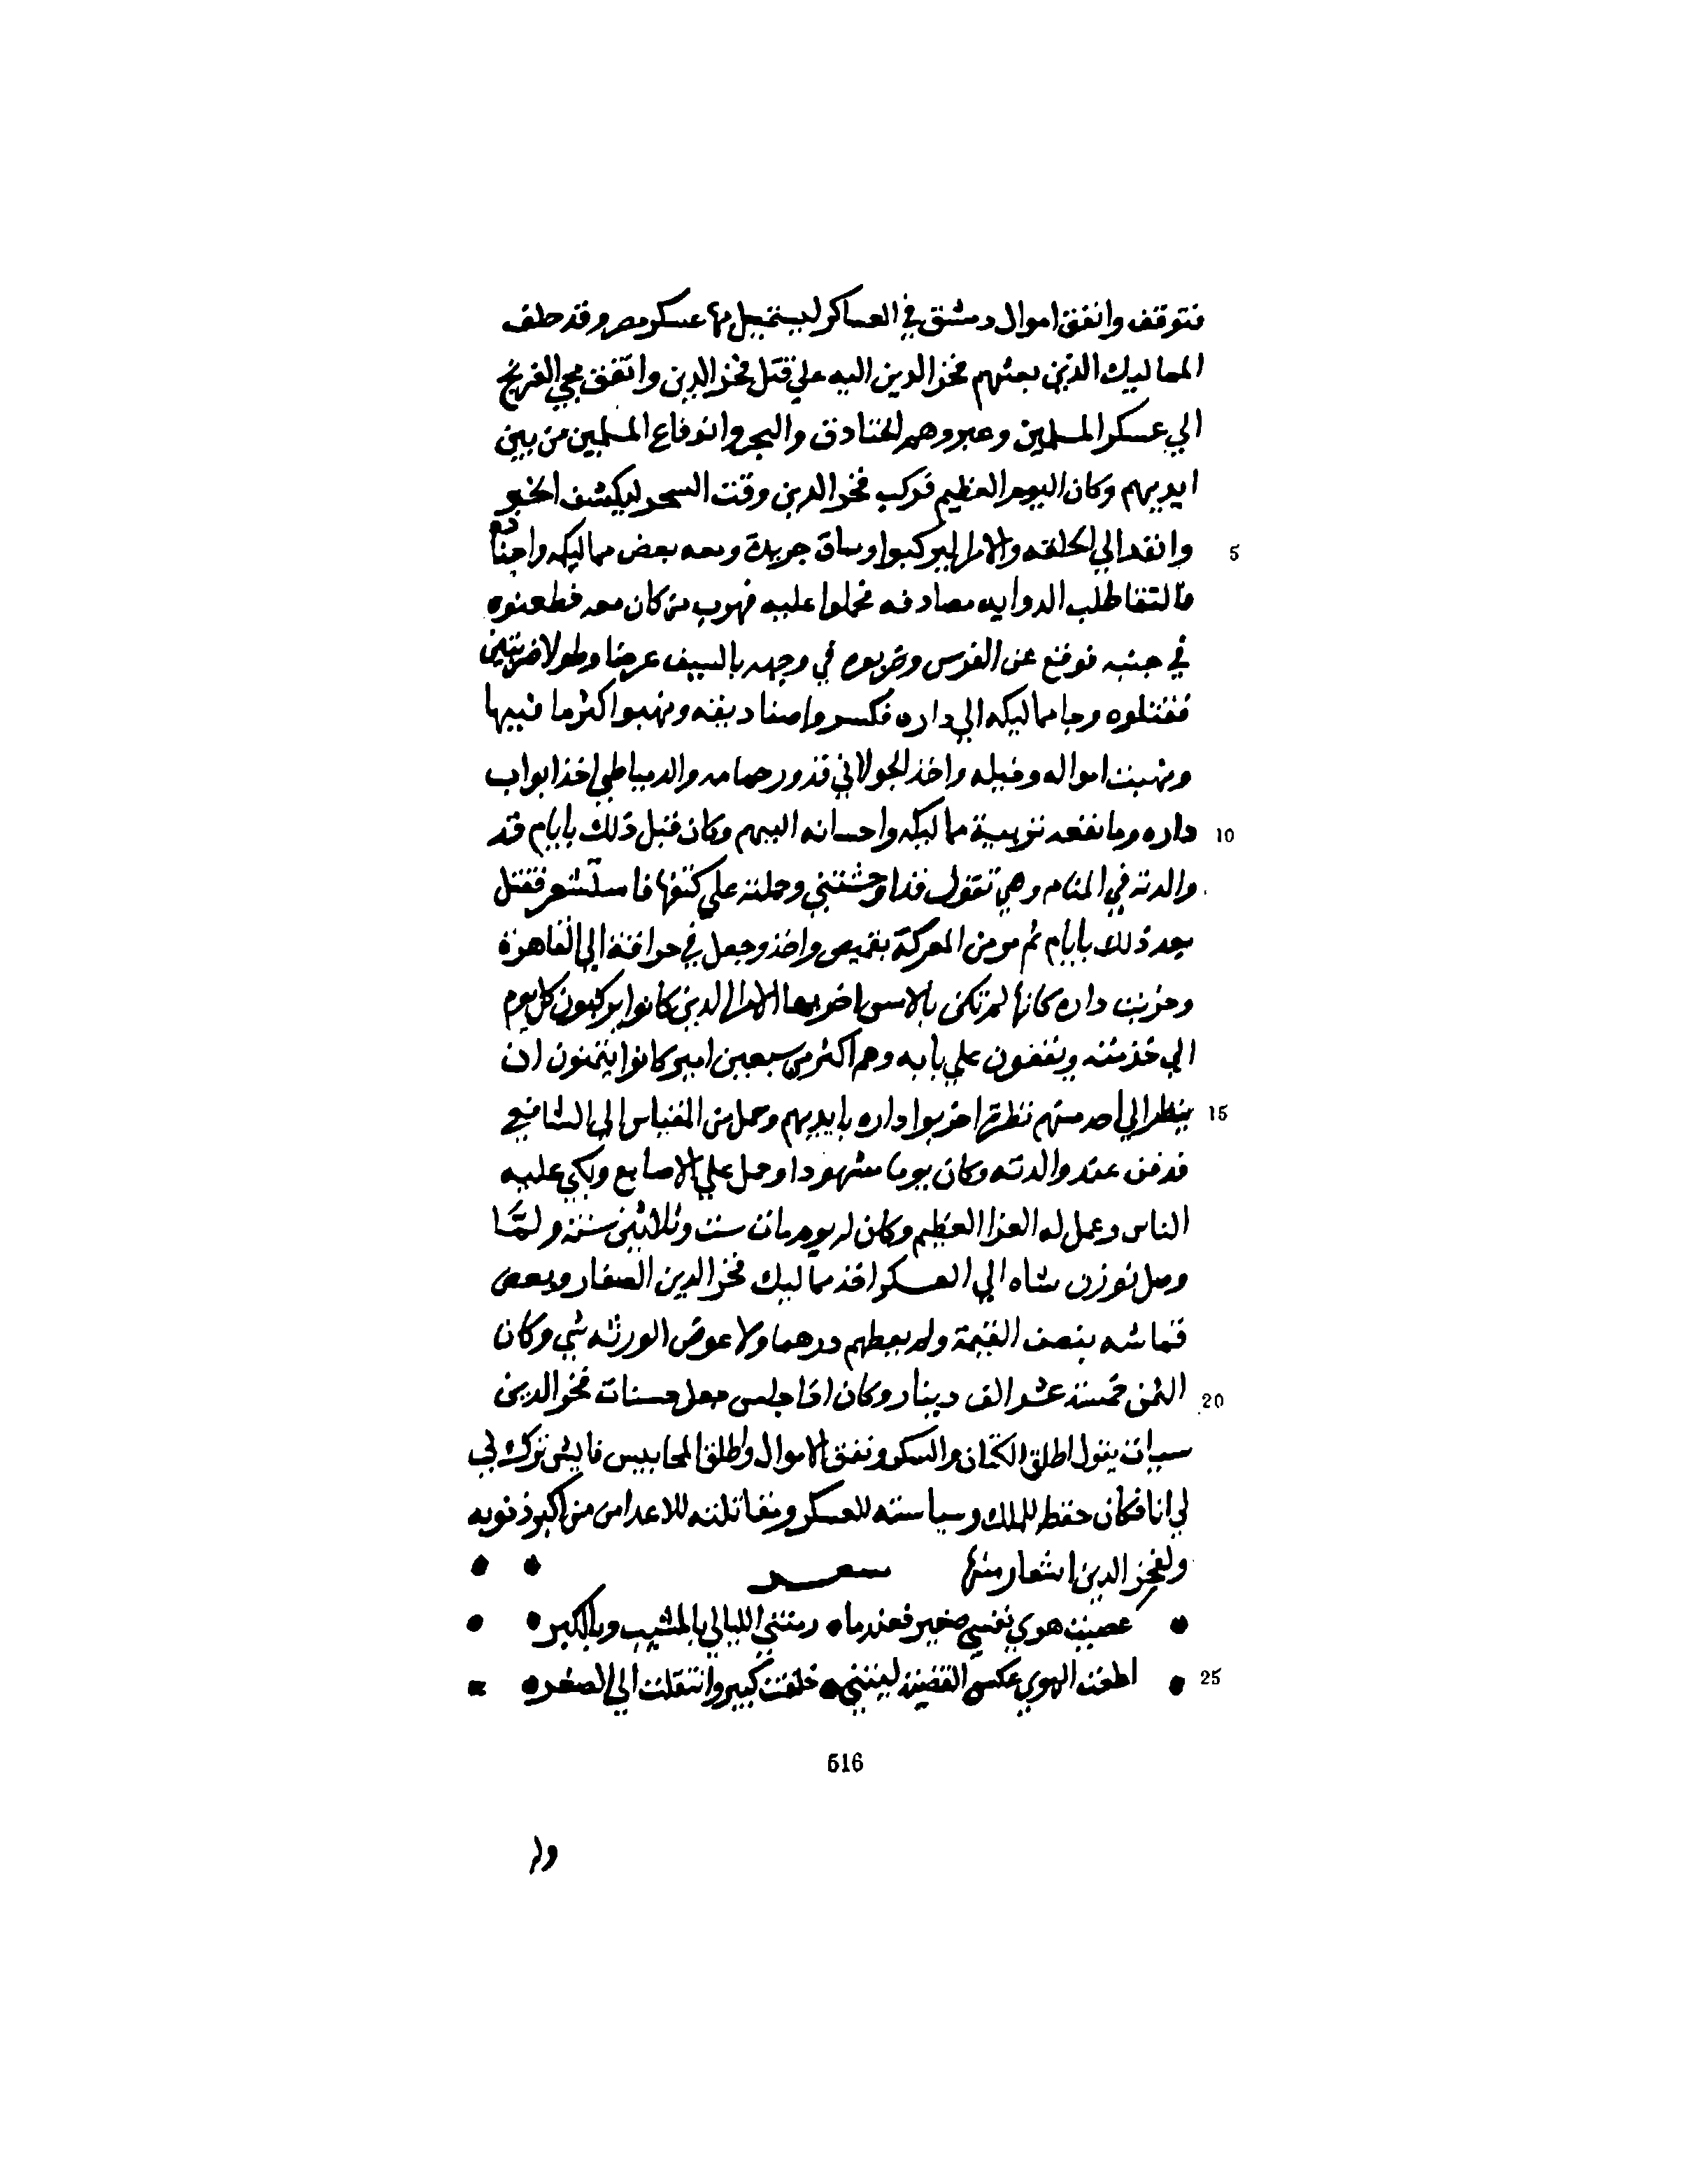 فتوقف وانفق اموال دمشق في العساكر ليستميل بها عسكر مصر وقد حلف
المماليك الذين بعثهم فخر الدين اليه علي قتل فخر الدين واتفق مجي الفرنج
الي عسكر المسلمين وعبروهم الخنادق والبحر واندفاع المسلمين من بين
ايديهم وكان اليوم العظيم فركب فخر الدين وقت السحر ليكشف الخبر
5 وانفد الي الحلقه والامرا ليركبوا وساق جريدة ومعه بعض مماليكه واجناده
فالتقا طلب الدوايه مصادفه فحملوا عليه فهرب من كان معه فطعنوه
في جنبه فوقع عن الفرس وضربوه في وجهه بالسيف عرضا وطولا ضربتين
فقتلوه وجا مماليكه الي داره فكسروا صناديقه ونهبوا اكثر ما فيها
ونهبت امواله وخيله واخذ الجولاني قدور حمامه والدمياطي اخذ ابواب
10 داره وما نفعه تربية مماليكه واحسانه اليهم وكان قبل ذلك بايام قد
والدته في المنام وهي تقول قد اوحشتني وحملته علي كتفها فاستشعر فقتل
بعد ذلك بايام ثم من المعركة بقميص واخذ وجعل في حراقة الي القاهرة
وخربت داره كانها لم تكن بالامس اخربها الامرا الدين كانوا يركبون كل يوم
الي خدمته ويقفون علي بابه وهم اكثر من سبعين امير كانوا يتمنون ان
15 ينظر الي احد منهم نظرة اخربوا داره بايديهم وحمل من المقياس الي الشافعي
فدفن عند والدته وكان يوما مشهودا وحمل علي الاصابع وبكي عليه
الناس وعمل له العزا العظيم وكان له يوم مات ست وثلاثين سنة ولمّا
وصل توزن شاه الي العسكر اخذ مماليك فخر الدين الصغار وبعض
قماشه بنصف القيمة ولم يعطهم درهما ولا عوض الورثه شي وكان
20 الثمن خمسة عشر الف دينار وكان اذا جلس جعل حسنات فخر الدين
سيات يقول اطلق الكتان والسكر ونفق الاموال واطلق المحابيس فايش ترك لي
لي انا فكان حفظ للملك وسياسته للعسكر ومقاتلته للاعدا من من اكبر ذنوبه
ولفخر الدين اشعار منها شعر
عصيت هوي نفسي صغير فعندما رمتني الليالي بالمشيب وبالكبر
25 اطعت الهوي عكس القضية ليتني خلقت كبير وانتقلت الي الصغر
516
وله